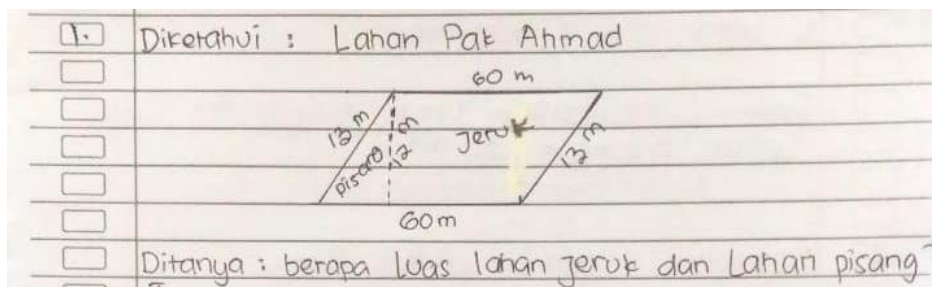 1. Diketahui : Lahan Pak Ahmad
60 m
13 m
12 m
Jeruk
pisang
13 m
60 m
Ditanya : berapa luas lahan jeruk dan Lahan pisang?